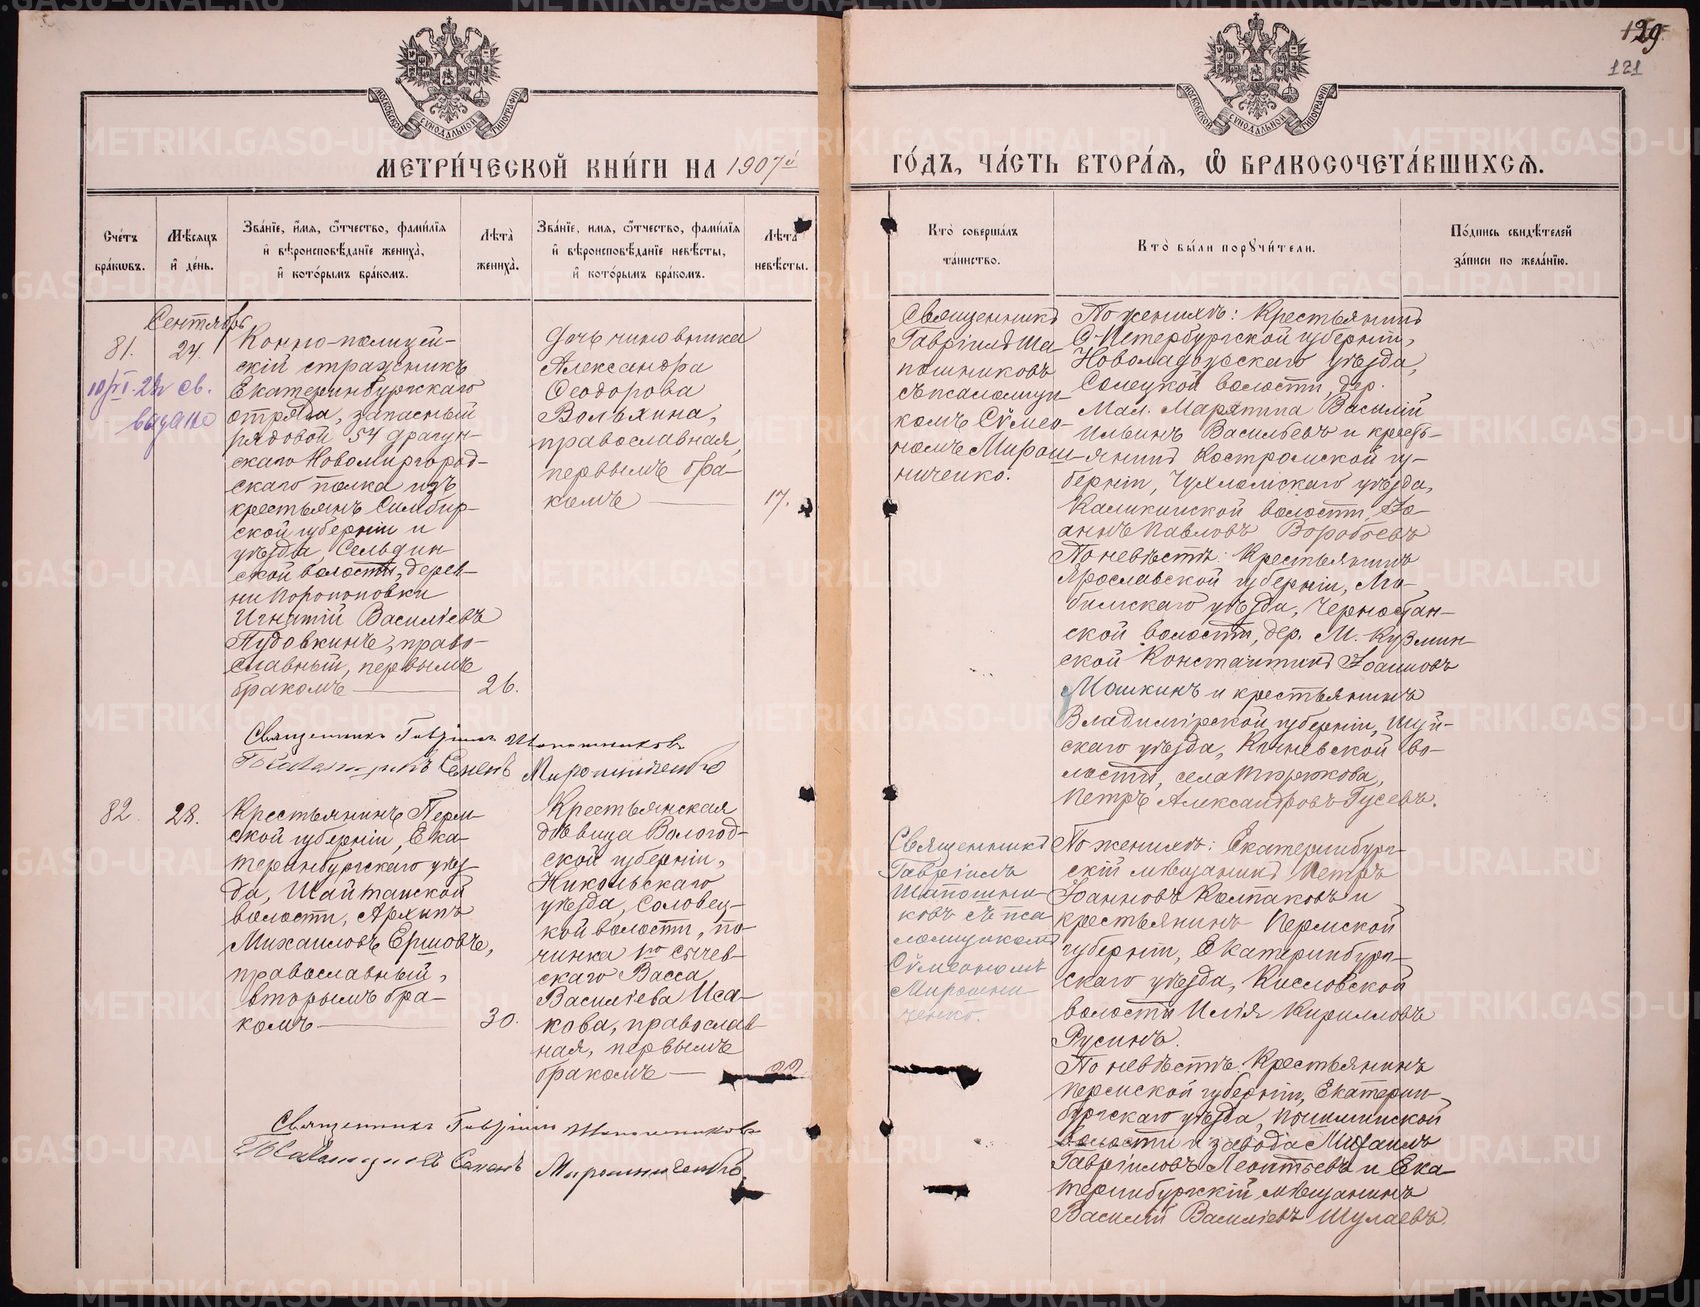 129
121
МОСКОВСКОЙ СѴНОДАЛЬНОЙ ТИПОГРАФІИ
МОСКОВСКОЙ СѴНОДАЛЬНОЙ ТИПОГРАФІИ
МЕТРИ́ЧЕСКОЙ КНИ́ГИ НА 1907й
ГО́ДЪ, ЧА́СТЬ ВТОРА́Я, Ѡ҆ БРАКОСОЧЕТА́ВШИХСЯ.
Сче́тъ
бра́кѡвъ.
Мѣ́сяцъ
и҆ де́нь.
Зва́нїе, и҆́мя, ѻ҆́тчество, фами́лїя
и҆ вѣроисповѣ́данїе жениха̀,
и҆ кото́рымъ бра́комъ.
Лѣ́та̀
жениха̀.
Зва́нїе, имя, ѻ҆́тчество, фами́лїя
и҆ вѣроисповѣ́данїе невѣ́сты,
и҆ кото́рымъ бра́комъ.
Лѣ́та̀
невѣ́сты.
Кто̀ соверша́лъ
та́инство.
Кто̀ бы́ли порꙋчи́тели.
По́дпись свидѣ́телей
за́писи по жела́нїю.
Сентябрь
81.
24.
св.
выдано
Конно-полицей-
скій стражникъ
Екатеринбургскаго
отряда, запасный
рядовой 54 драгун-
скаго Новомиргород-
скаго полка изъ
крестьянъ Симбир-
ской губерніи и
уѣзда, Сельдин-
ской волости, дерев-
ни
Игнатій Васильевъ
Пудовкинъ, право-
славный, первымъ
бракомъ
26.
Дочь чиновника
Александра
Ѳеодорова
православная,
первымъ бра-
комъ
17.
Священникъ Гавріилъ Шапошниковъ
Псаломщикъ Семенъ Мирошниченко
Священникъ
Гавріилъ Ша-
пошниковъ
съ псаломщи-
комъ Сѵмео-
номъ Мирош-
ниченко.
По женихѣ: Крестьянинъ
С-Петербургской губерніи,
Новоладожскаго уѣзда,
Солецкой волости, дер.
Мал. Василій
Ильинъ Васильевъ и кресть-
янинъ Костромской гу-
берніи, Чухломскаго уѣзда,
Каликинской волости Іо-
аннъ Павловъ Воробьевъ
По невѣстѣ: Крестьянинъ
Ярославской губерніи, Лю-
бимскаго уѣзда,
ской волости, дер. М. Кузмин-
ской Константинъ Іоанновъ
Мошкинъ и крестьянинъ
Владимірской губерніи, Шуй-
скаго уѣзда, во-
лости, села
Петръ Александровъ Гусевъ.
82.
28.
Крестьянинъ Перм-
ской губерніи, Ека-
теринбургскаго уѣз-
да, Шайтанской
волости, Архипъ
Михаиловъ Ершовъ,
православный,
вторымъ бра-
комъ
30.
Крестьянская
дѣвица Вологод-
ской губерніи,
Никольскаго
уѣзда, Соловец-
кой волости, по-
чинка 1го Сычев-
скаго Васса
Васильева Иса-
кова, православ-
ная, первымъ
бракомъ
Священникъ Гавріилъ Шапошниковъ
Псаломщикъ Семенъ Мирошниченко
Священникъ
Гавріилъ
Шапошни-
ковъ съ пса-
ломщикомъ
Сѵмеономъ
Мирошни-
ченко.
По женихѣ: Екатеринбург-
скій мѣщанинъ Петръ
Іоанновъ Колпаковъ и
крестьянинъ Пермской
губерніи, Екатеринбург-
скаго уѣзда, Кисловской
волости Илія Кирилловъ
Русинъ.
По невѣстѣ: Крестьянинъ
Пермской губерніи, Екатерин-
бургскаго уѣзда, Пышминской
волости и завода Михаилъ
Гавріиловъ Леонтьевъ и Ека-
теринбургскій мѣщанинъ
Василій Васильевъ Шулаевъ.
METRIKI.GASO-URAL.RU